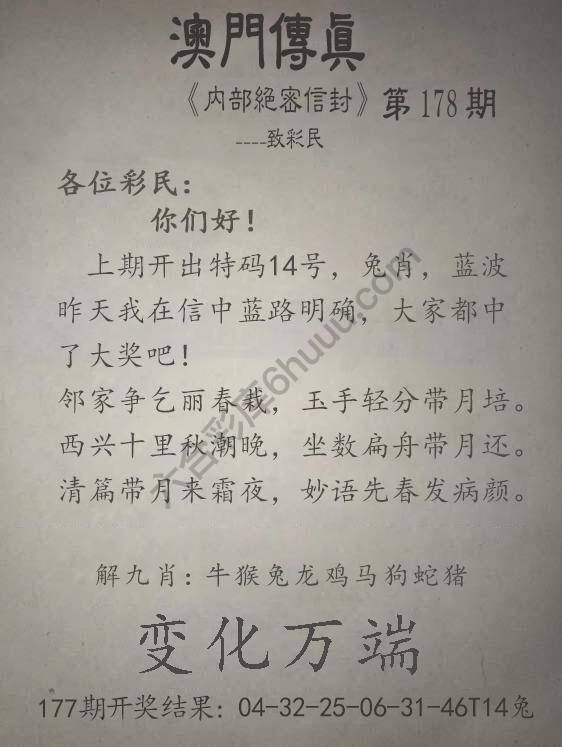 澳門傳眞
《内部絕密信封》第178期
----致彩民
各位彩民：
你们好！
上期开出特码14号，兔肖，蓝波
昨天我在信中蓝路明确，大家都中
了大奖吧！
邻家争乞丽春栽，玉手轻分带月培。
西兴十里秋潮晚，坐数扁舟带月还。
清篇带月来霜夜，妙语先春发病颜。
六合彩库6huuu.com
解九肖：牛猴兔龙鸡马狗蛇猪
变化万端
177期开奖结果：04-32-25-06-31-46T14兔